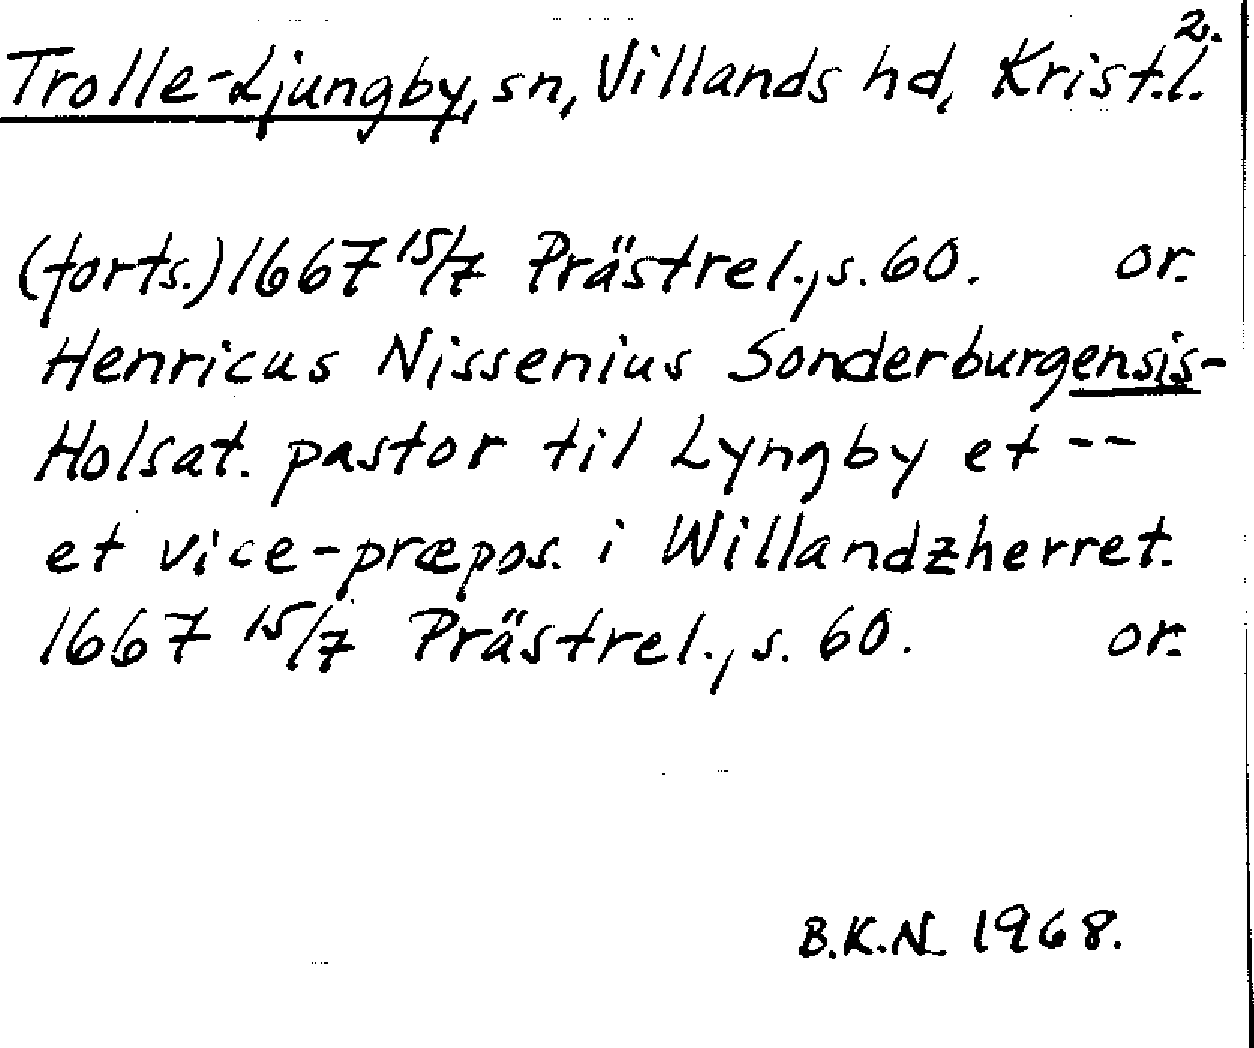 2.
Trolle-Ljungby, sn, Villands hd, Krist.l.
(forts.) 1667 15/7 Prästrel., s. 60. or.
Henricus Nissenius Sonderburgensis-
Holsat. pastor til Lyngby et --
et vice-præpos. i Willandzherret.
1667 15/7 Prästrel., s. 60. or.
B.K.N. 1968.